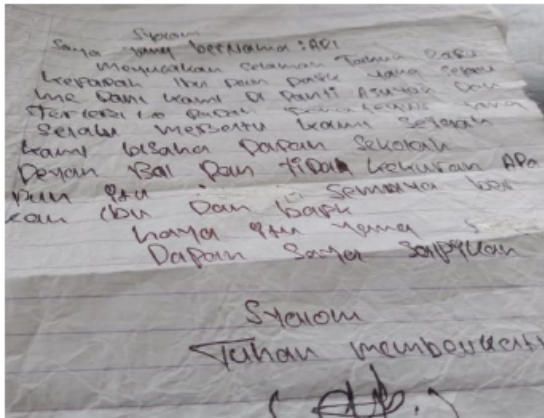 Syalom
Saya yang bernama : ARI
Mengucakan selamat Tahun Baru
kepadah ibu Dan Bapk yang selalu
me Dani kami Di Panti Asuhan Dan
terlebi lo Dapah yang
Selalu Membatu kami Selalah
kami bisaha Dapan Sekolah
Dengan Bai Dan tidak kekuran APa
Pun itu Semuya ber
kan ibu Dan bapk
haya itu yang
Dapan Saya Sapaikan
Syalom
Tuhan memberkati